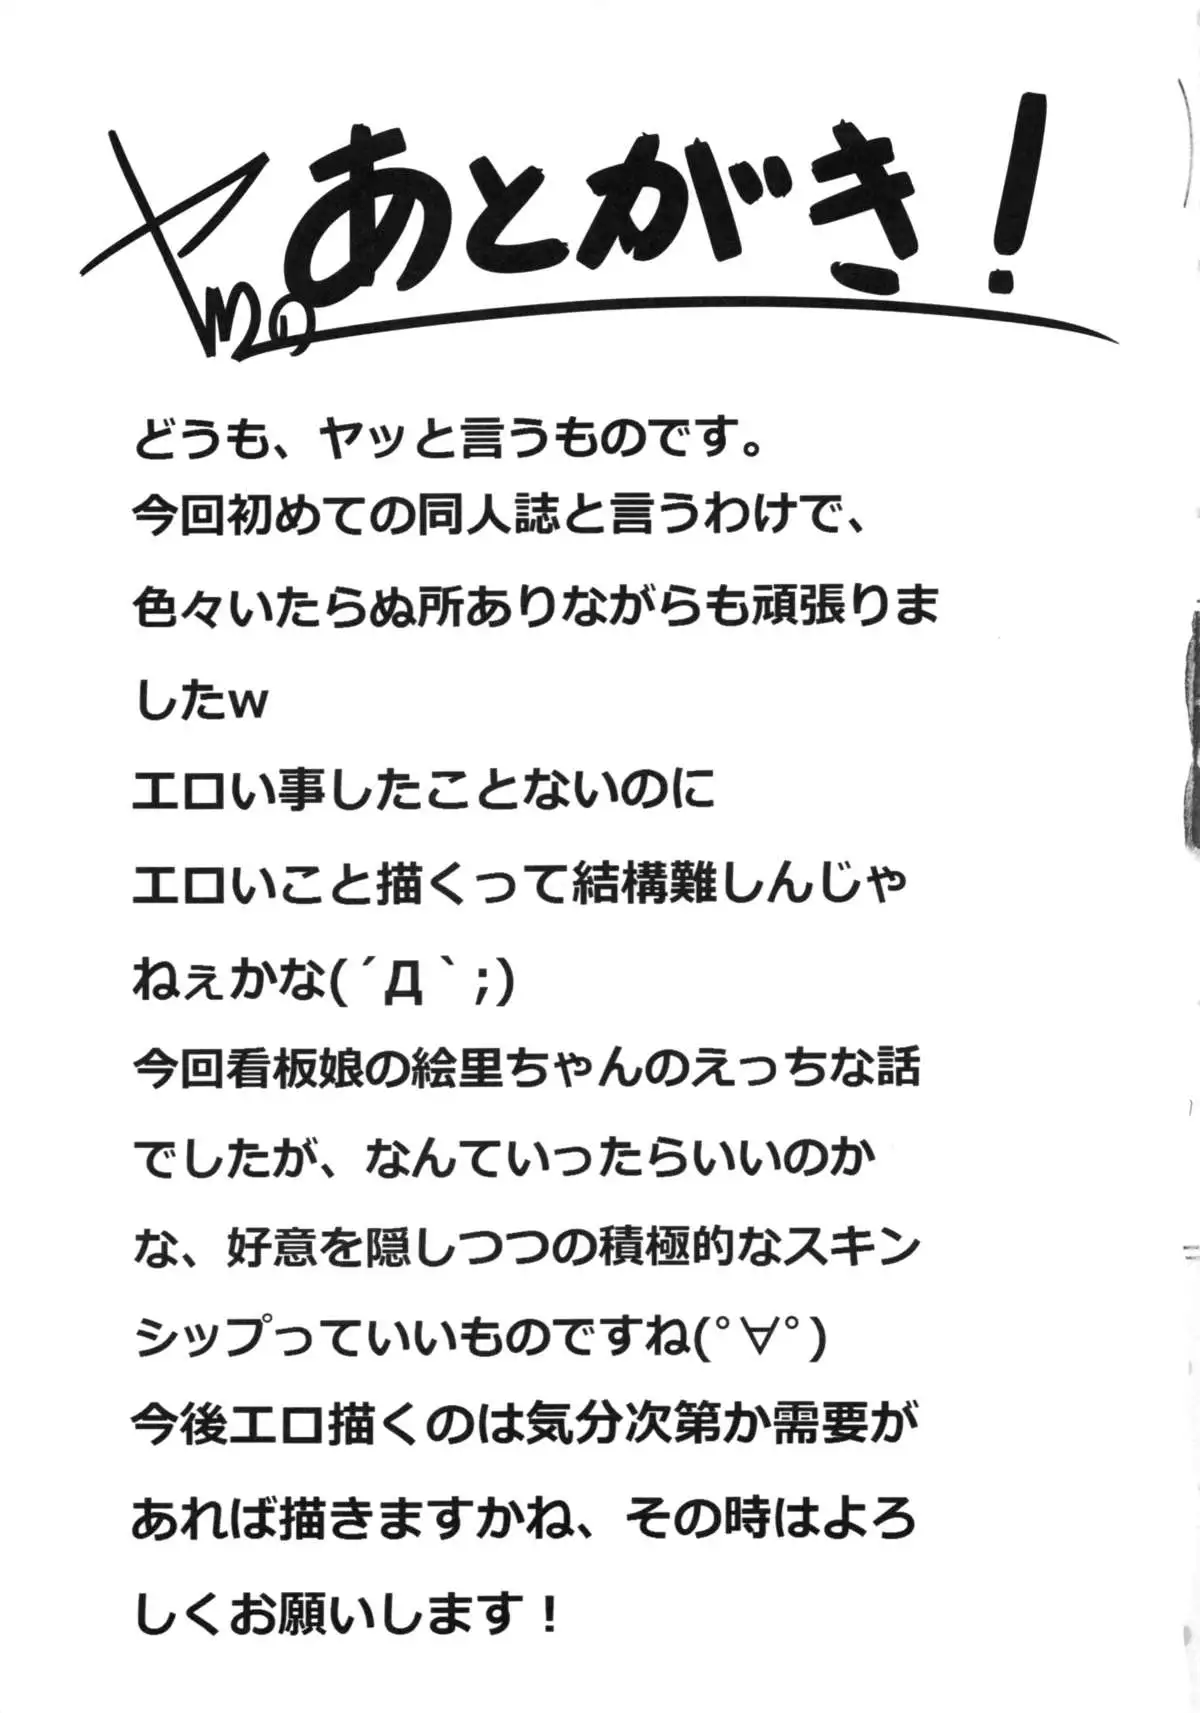 ヤッのあとがき！
どうも、ヤッと言うものです。
今回初めての同人誌と言うわけで、
色々いたらぬ所ありながらも頑張りま
したw
エロい事したことないのに
エロいこと描くって結構難しんじゃ
ねぇかな(´Д｀;)
今回看板娘の絵里ちゃんのえっちな話
でしたが、なんていったらいいのか
な、好意を隠しつつの積極的なスキン
シップっていいものですね(ﾟ∀ﾟ)
今後エロ描くのは気分次第か需要が
あれば描きますかね、その時はよろ
しくお願いします！